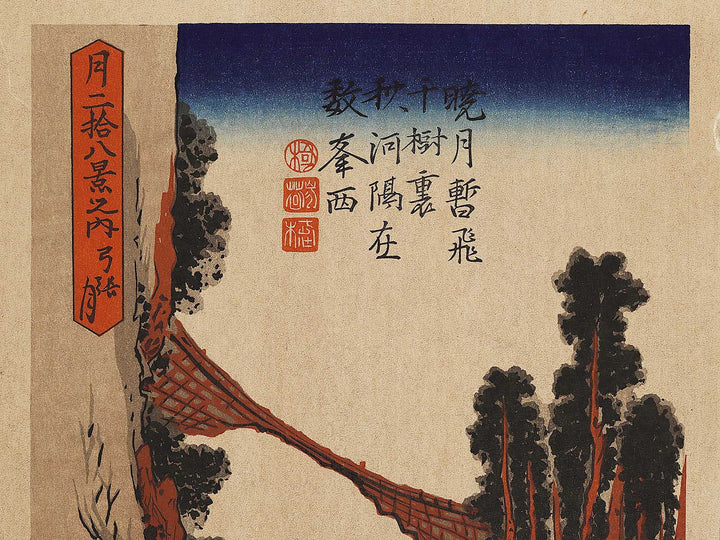 暁月暫飛
千樹裏
秋河隔在
数峯西
月二拾八景之内 弓張月